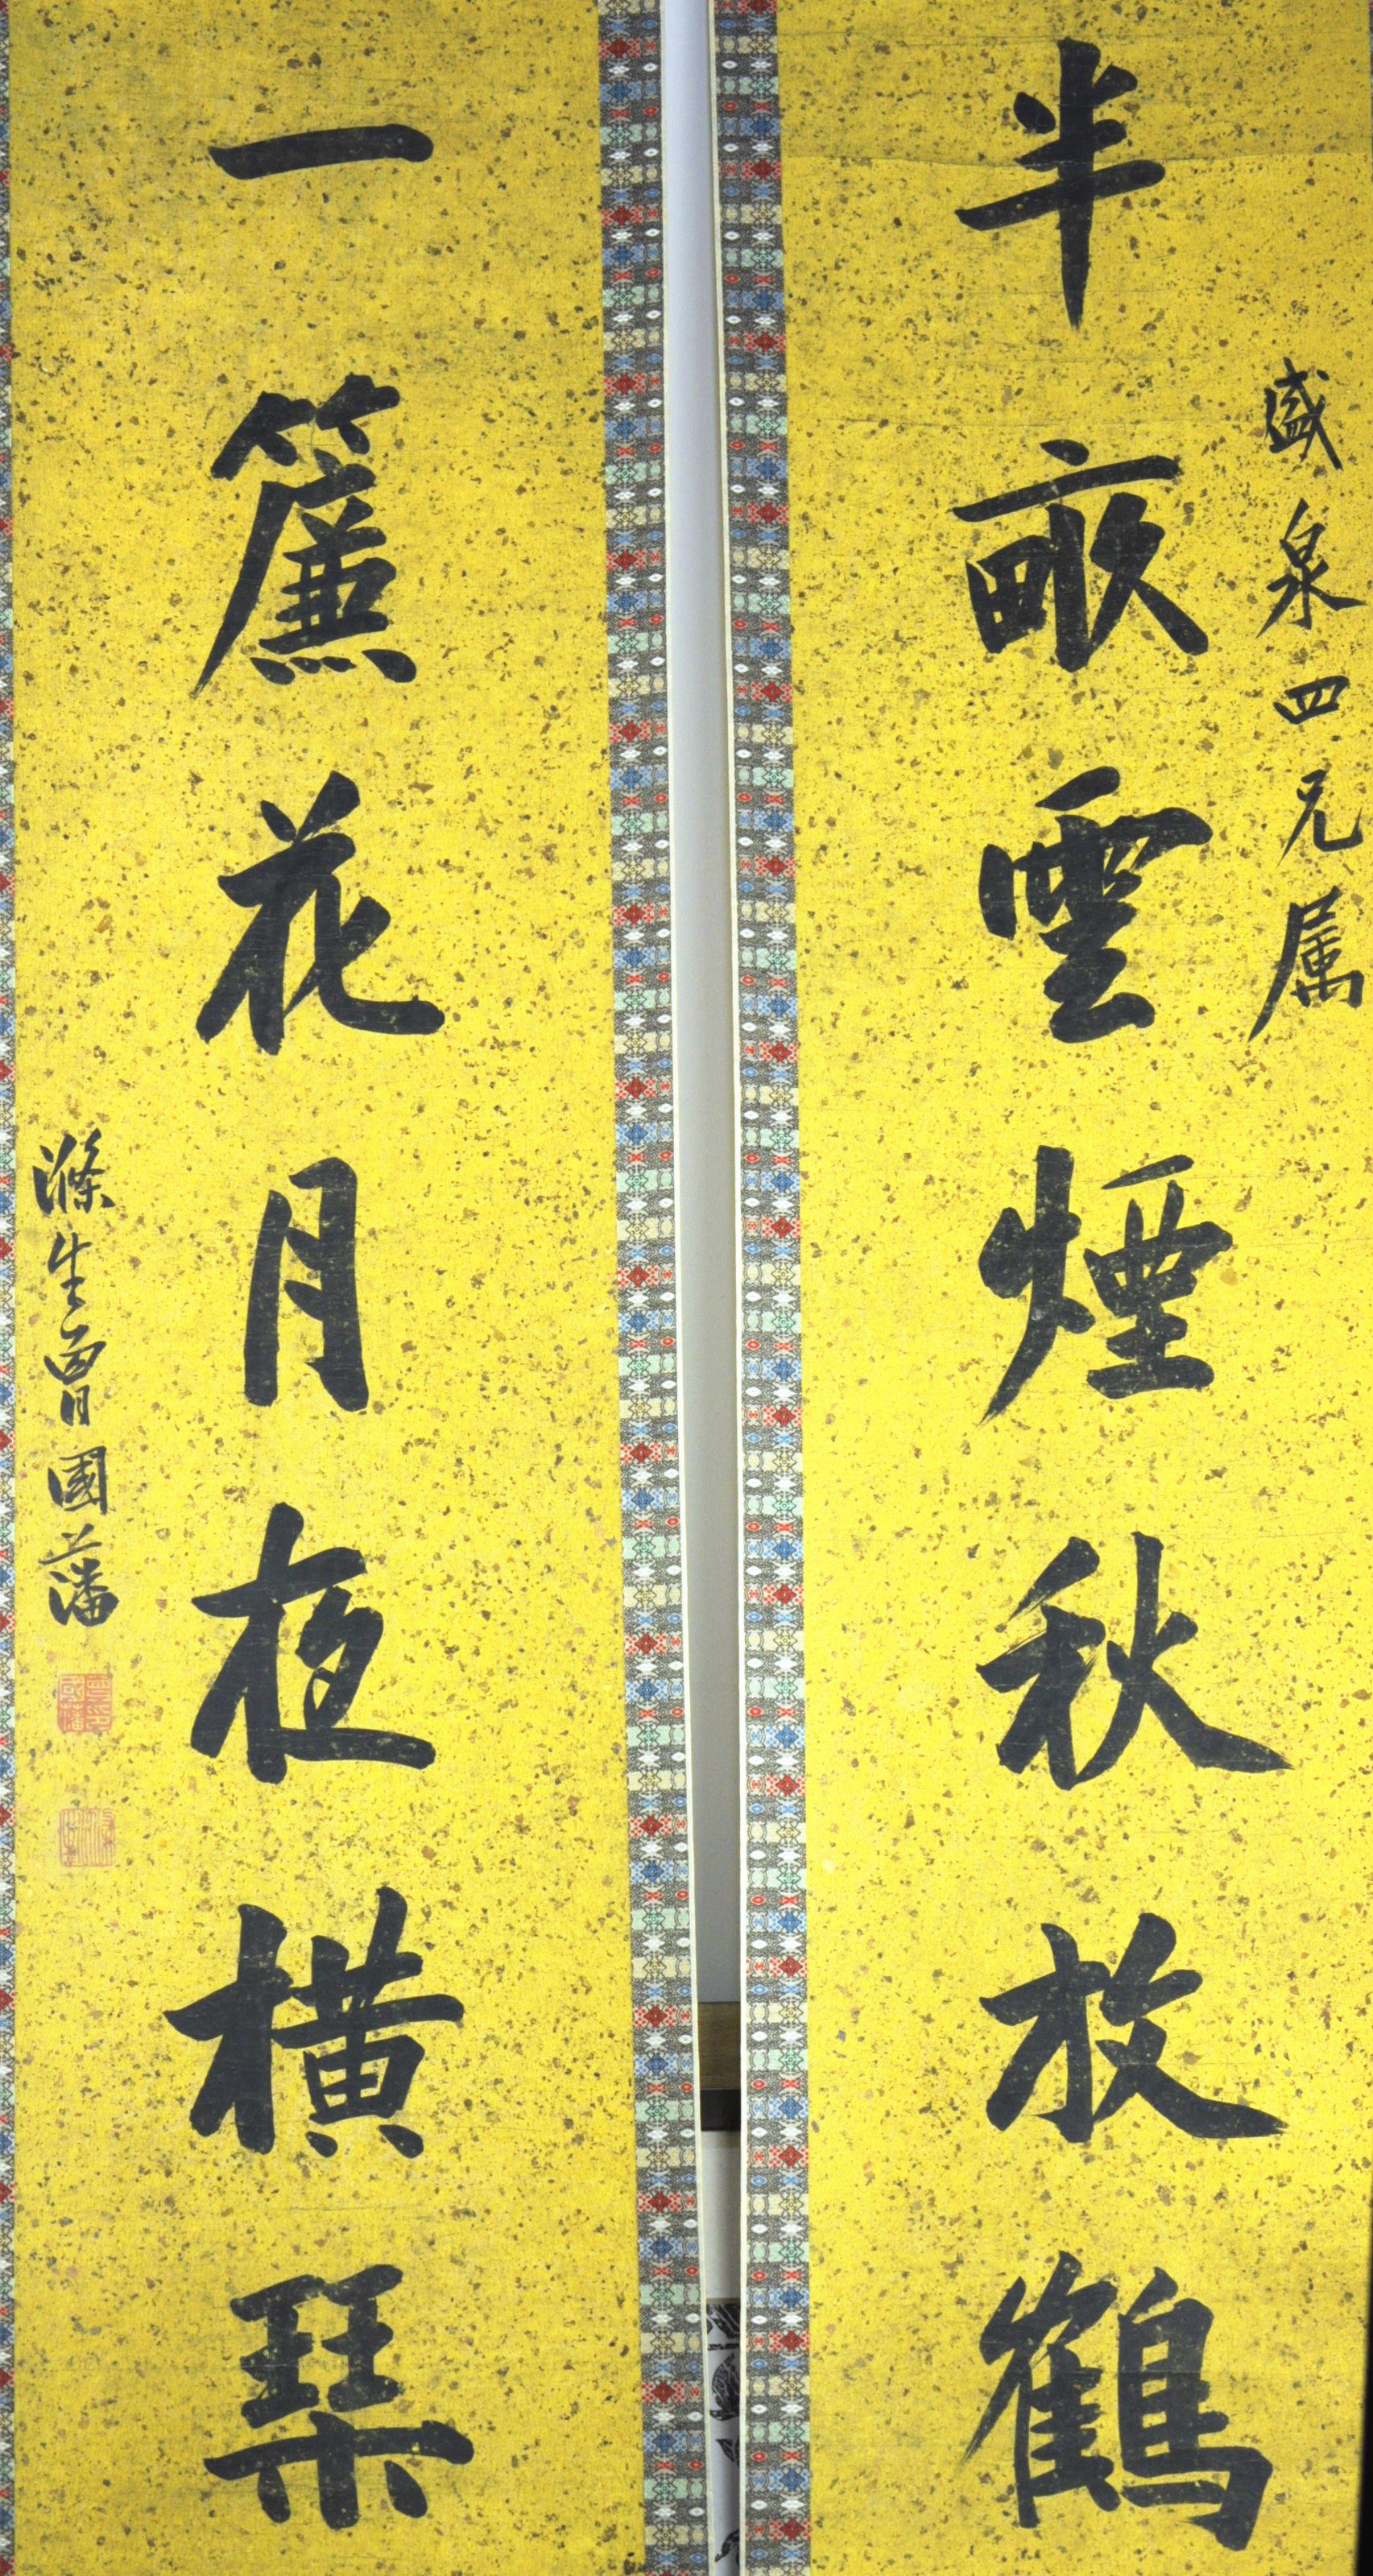 盛泉四兄属
半畝雲煙秋放鶴
一簾花月夜橫琹
滌生曾國藩